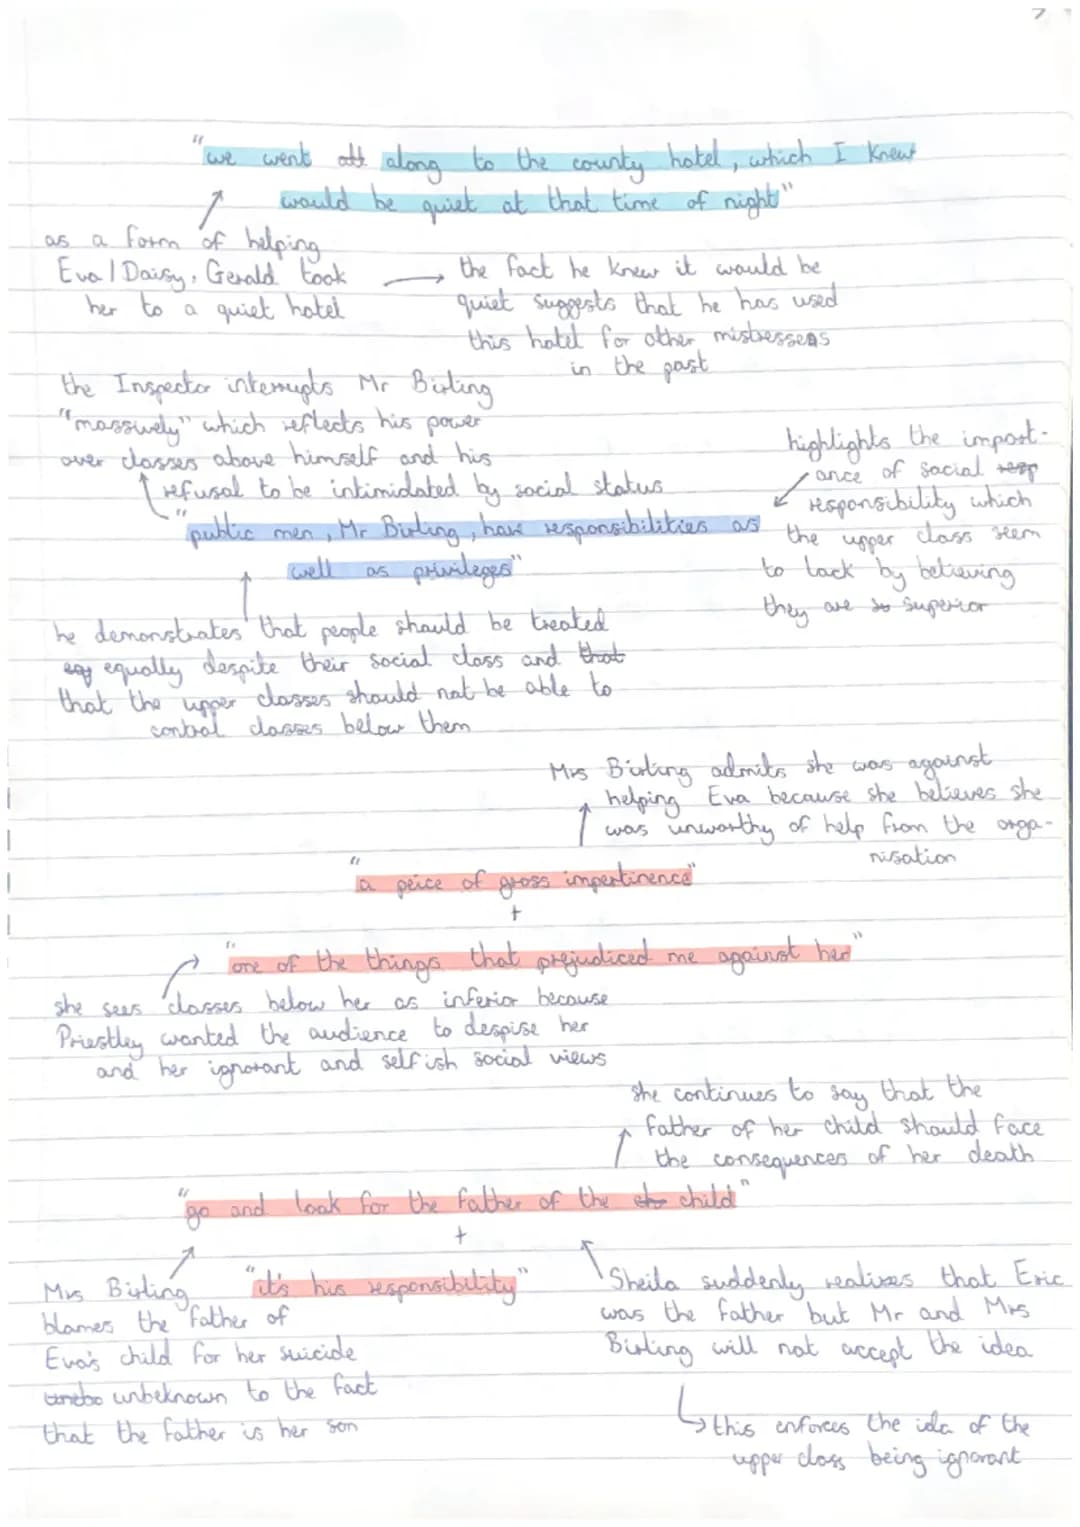 7
"we went off along to the county hotel, which I knew
would be quiet at that time of night"
as a form of helping
Eva / Daisy, Gerald took
her to a quiet hotel
the fact he knew it would be
quiet suggests that he has used
this hotel for other mistressess
in the past
the Inspector interrupts Mr Birling
"massively" which reflects his power
over classes above himself and his
refusal to be intimidated by social status
highlights the import-
ance of social resp
responsibility which
the upper class seem
to lack by believing
they are so superior
"public men, Mr Birling, have responsibilities as
well as privileges"
he demonstrates that people should be treated
eq equally despite their social class and that
that the upper classes should not be able to
control classes below them
Mrs Birling admits she was against
helping Eva because she believes she
was unworthy of help from the orga-
nisation
"a peice of gross impertinence"
+
"one of the things that prejudiced me against her"
she sees classes below her as inferior because
Priestley wanted the audience to despise her
and her ignorant and selfish social views
she continues to say that the
father of her child should face
the consequences of her death
"go and look for the father of the child"
+
"it's his responsibility"
Mrs Birling
blames the father of
Eva's child for her suicide
unbeknown to the fact
that the father is her son
Sheila suddenly realises that Eric
was the father but Mr and Mrs
Birling will not accept the idea
this enforces the idea of the
upper class being ignorant